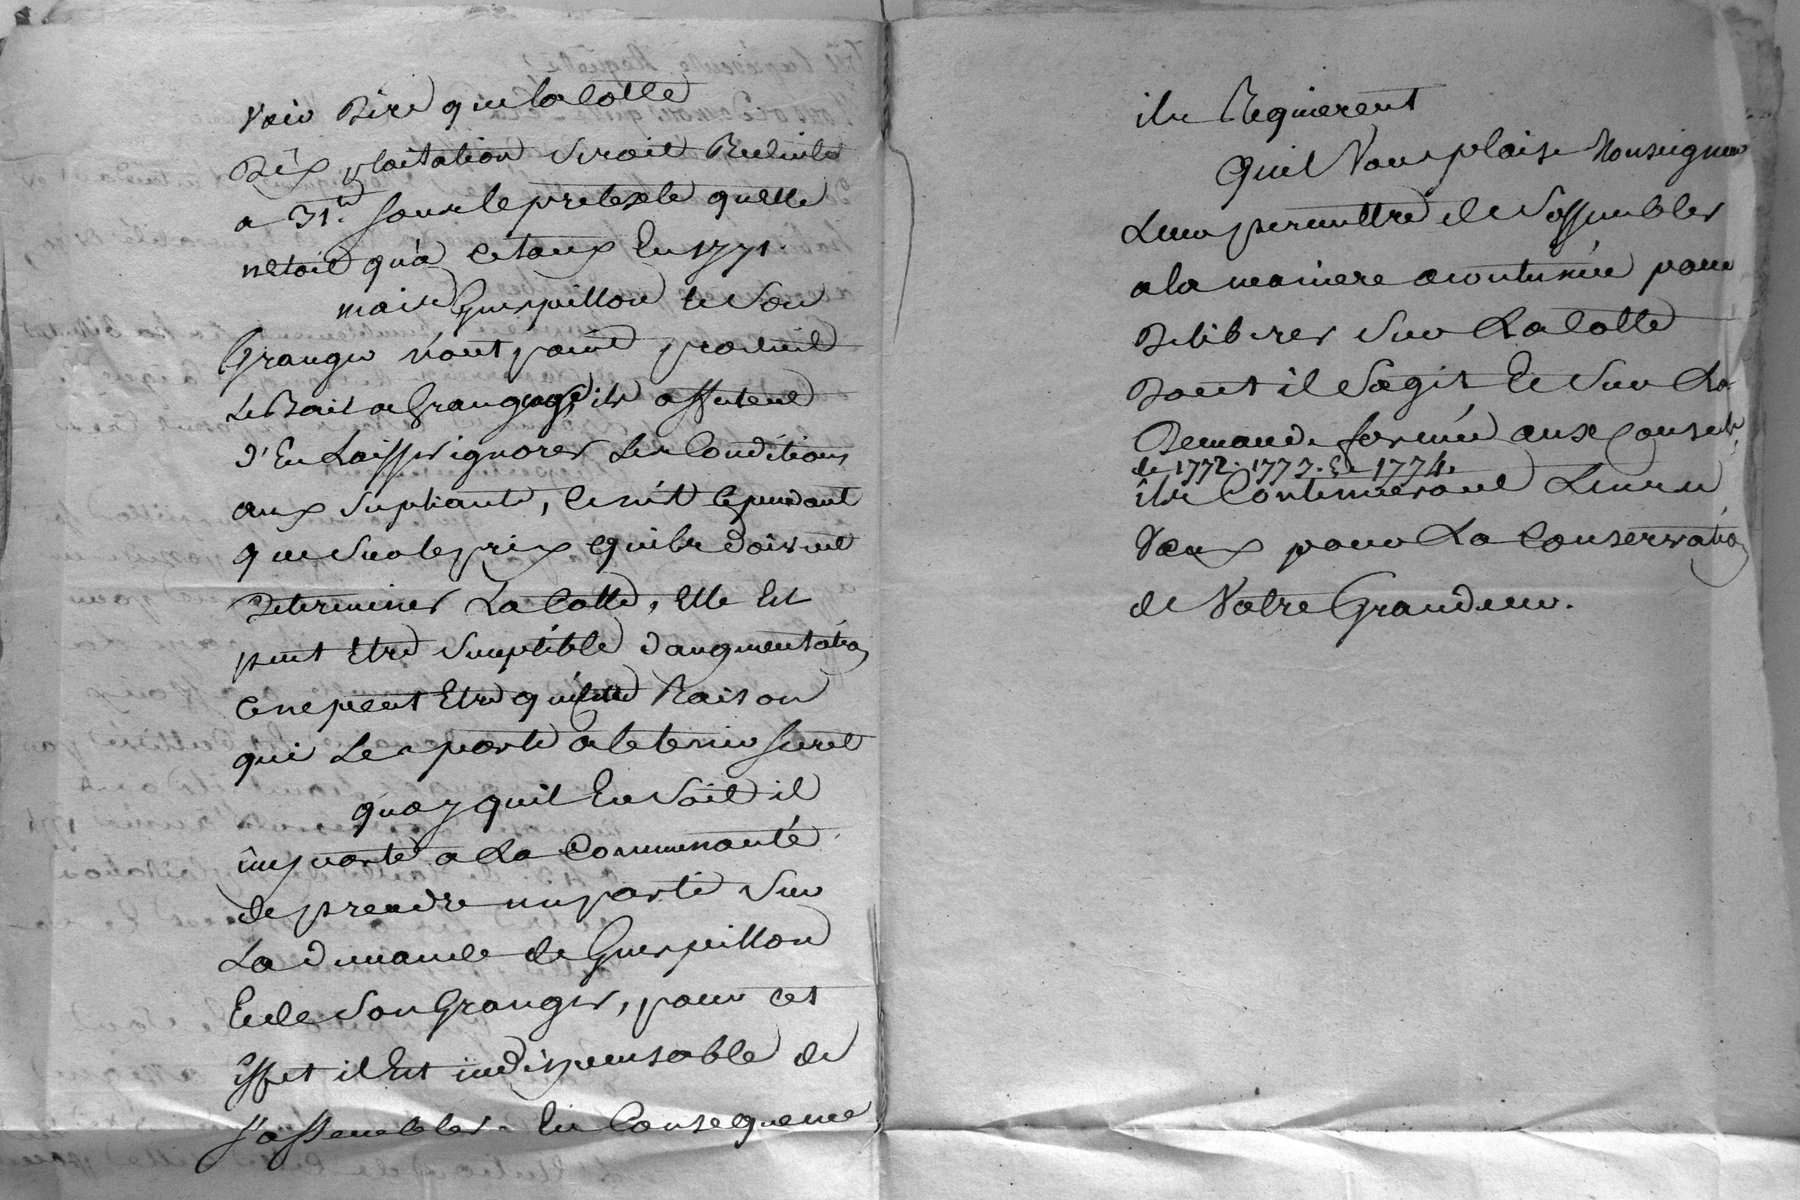 voir dire que la cotte
d'Exploitation seroit Reduite
a 31.ᵗᵗ sous le pretexte quelle
netoit qu'à ce taux En 1771.
mais Guespillon et son
Granger n'ont point produit
Le Bail a Grangeage, ils affectent
d'En Laisser ignorer Les Conditions
aux supliants, ce n'est cependant
que sur le prix qu'ils doivent
Determiner La Cotte, Elle Est
peut Etre suseptible daugmentation
ce ne peut Etre que cette Raison
qui Les porte a le tenir secret
quoy quil En soit il
importe a La Communauté
de prendre un parti sur
La demande de Guespillon
Et de son Granger, pour cet
Effet il Est indispensable de
s'assembler. En Consequence
ils Requierent
Quil Vous plaise Monseigneur
Leur permettre de s'assembler
a la maniere acoutumée pour
Deliberer sur La Cotte
Dont il s'agit Et sur La
Demande formée aux
de 1772. 1773. Et 1774.
ils Continueront Leurs
Vœux pour La Conservation
de Votre Grandeur.